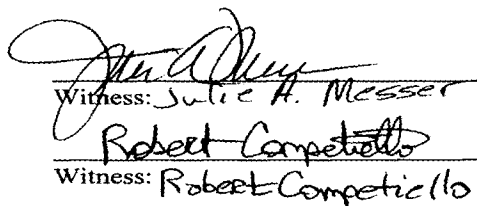 Witness: Julie A. Messer
Robert Competiello
Witness: Robert Competiello